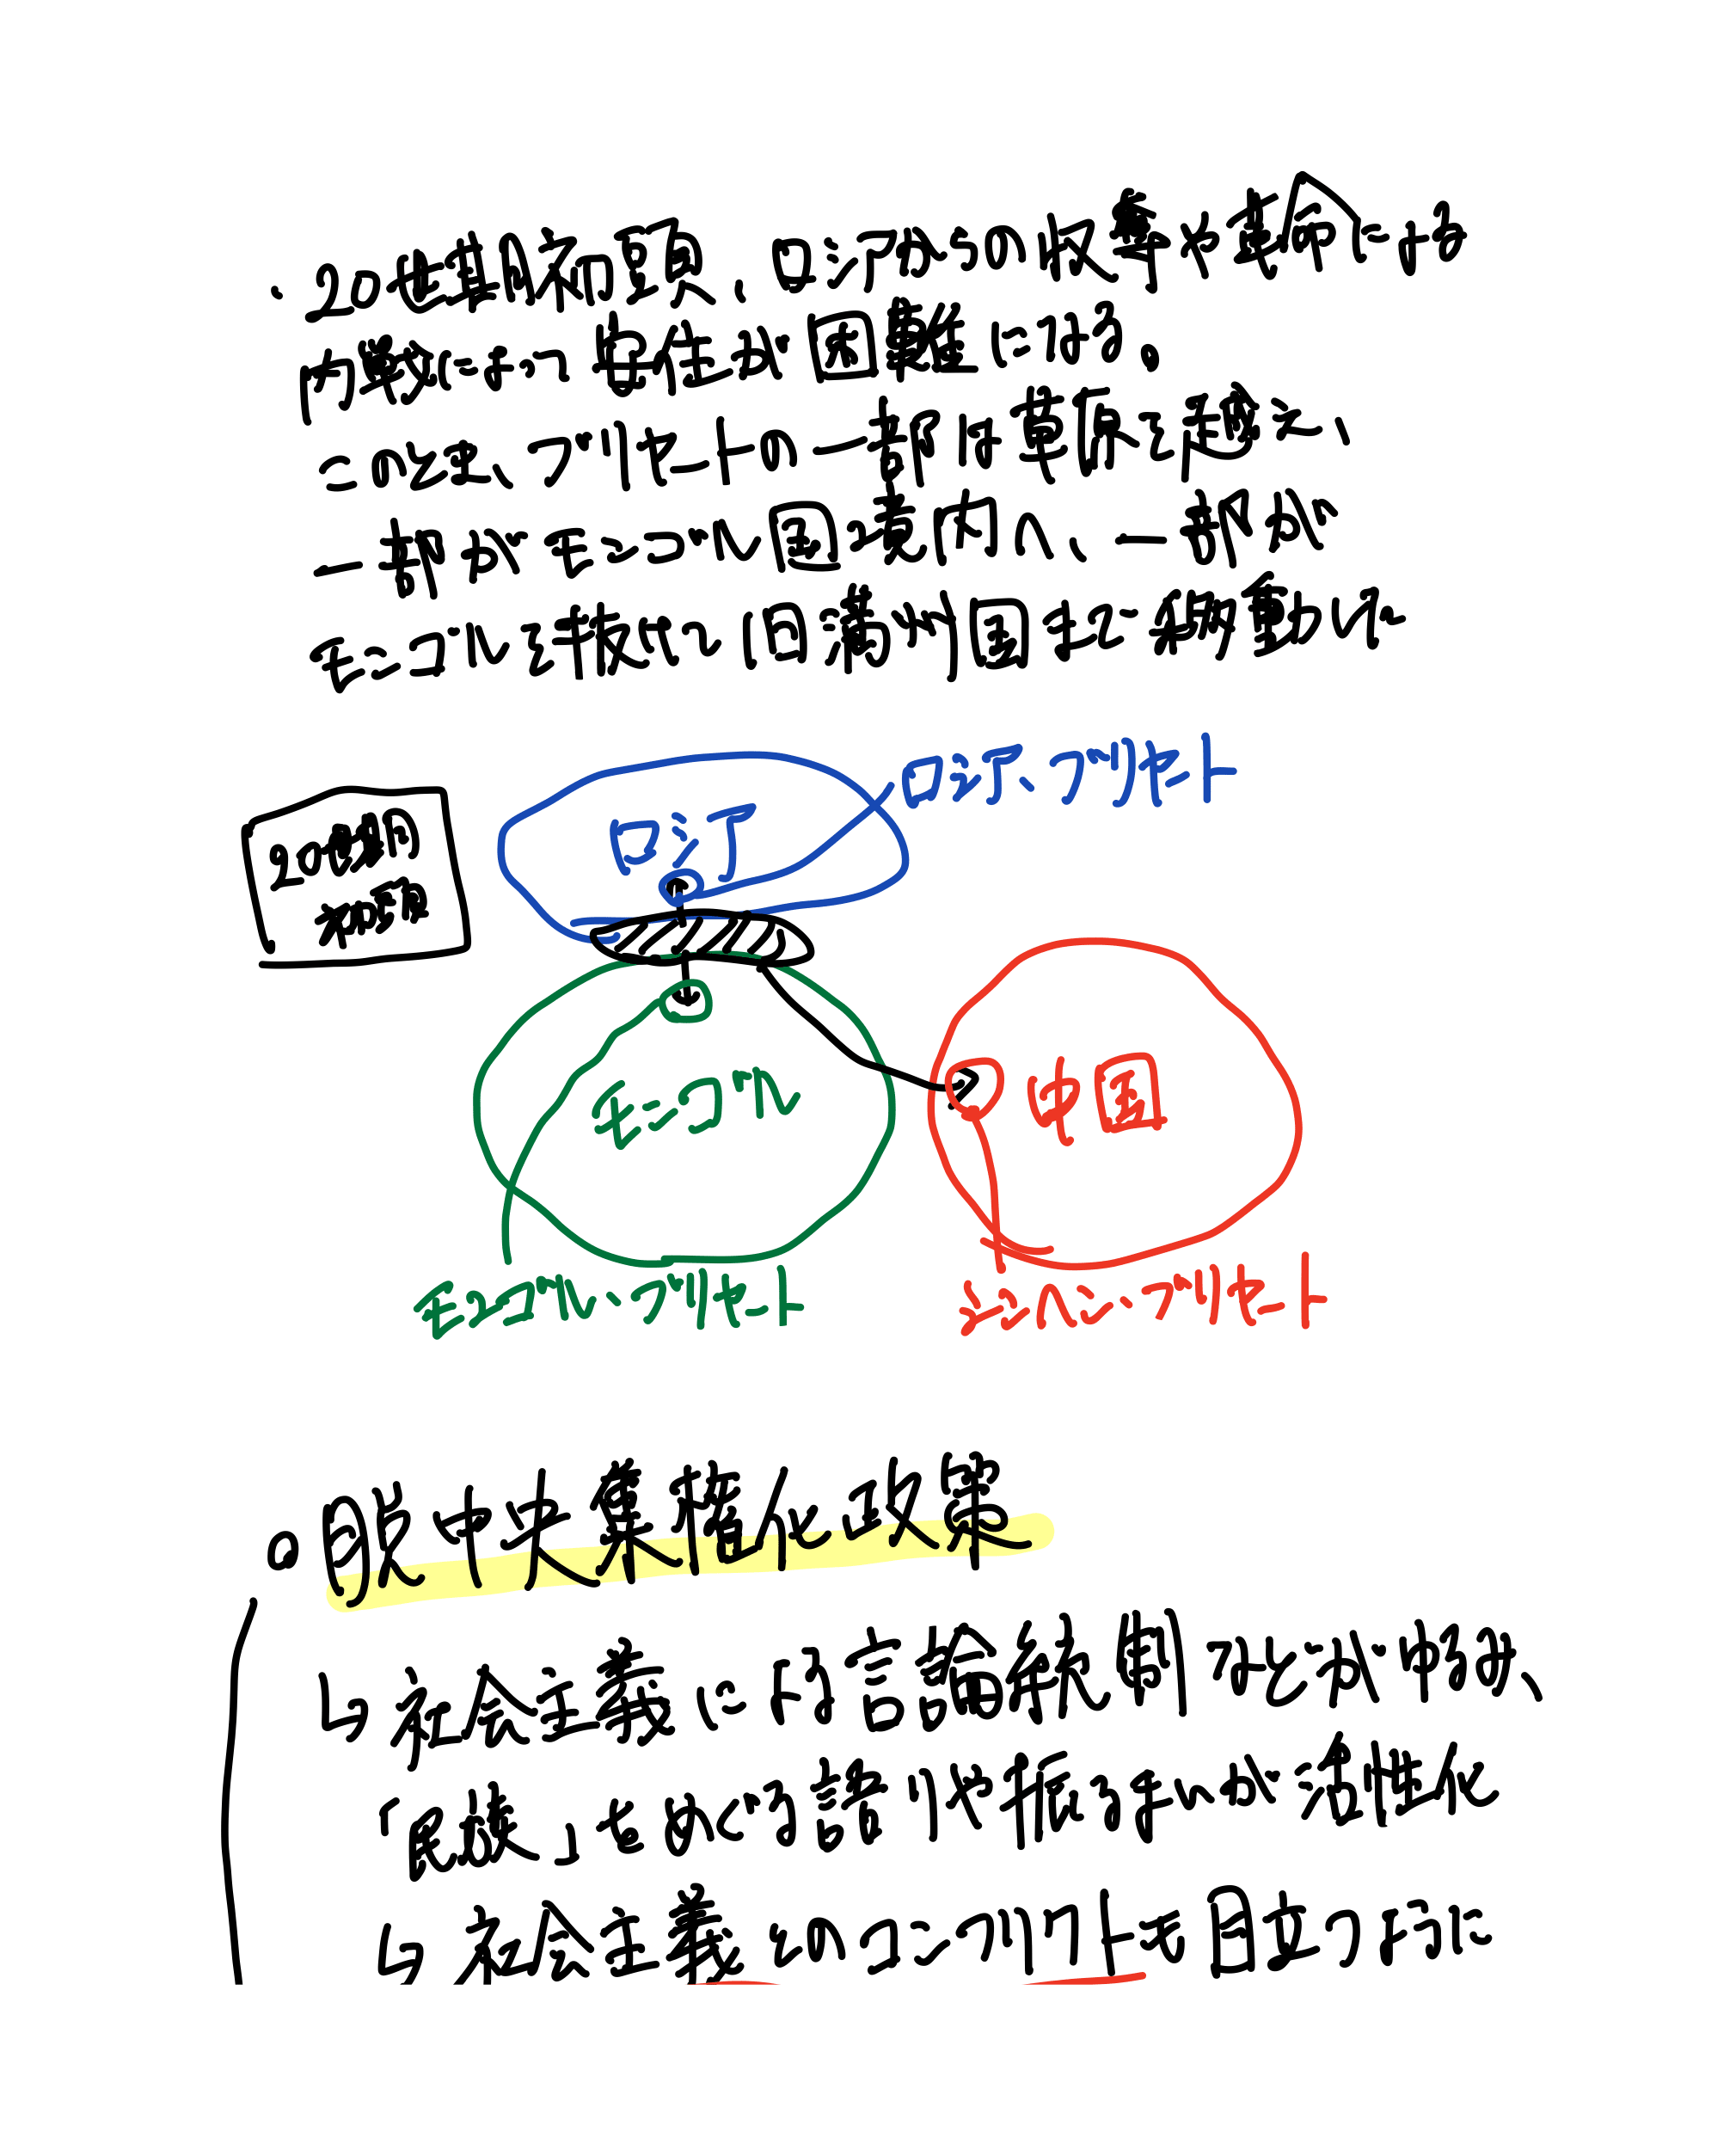 ・20世紀初頭、ロシアからの収奪や革命による
内戦によって母生が困難になる。
このとき、ブリヤートの一部は草原を越え、
一部がモンゴル国境内へ、一部が
モンゴルを抜けい同満州国まで移動した
ロシア・ブリヤート
20世紀
初頭
ロシア
モンゴル
中国
モンゴル・ブリヤート
シネヘン・ブリヤート
○ 牧中央集権化政策
↳ 社会主義による言論統制などが中弱み、
「民族」をめぐる語りや振る舞いが活性化
↳ 社会主義とのコンフリクトも目立つように